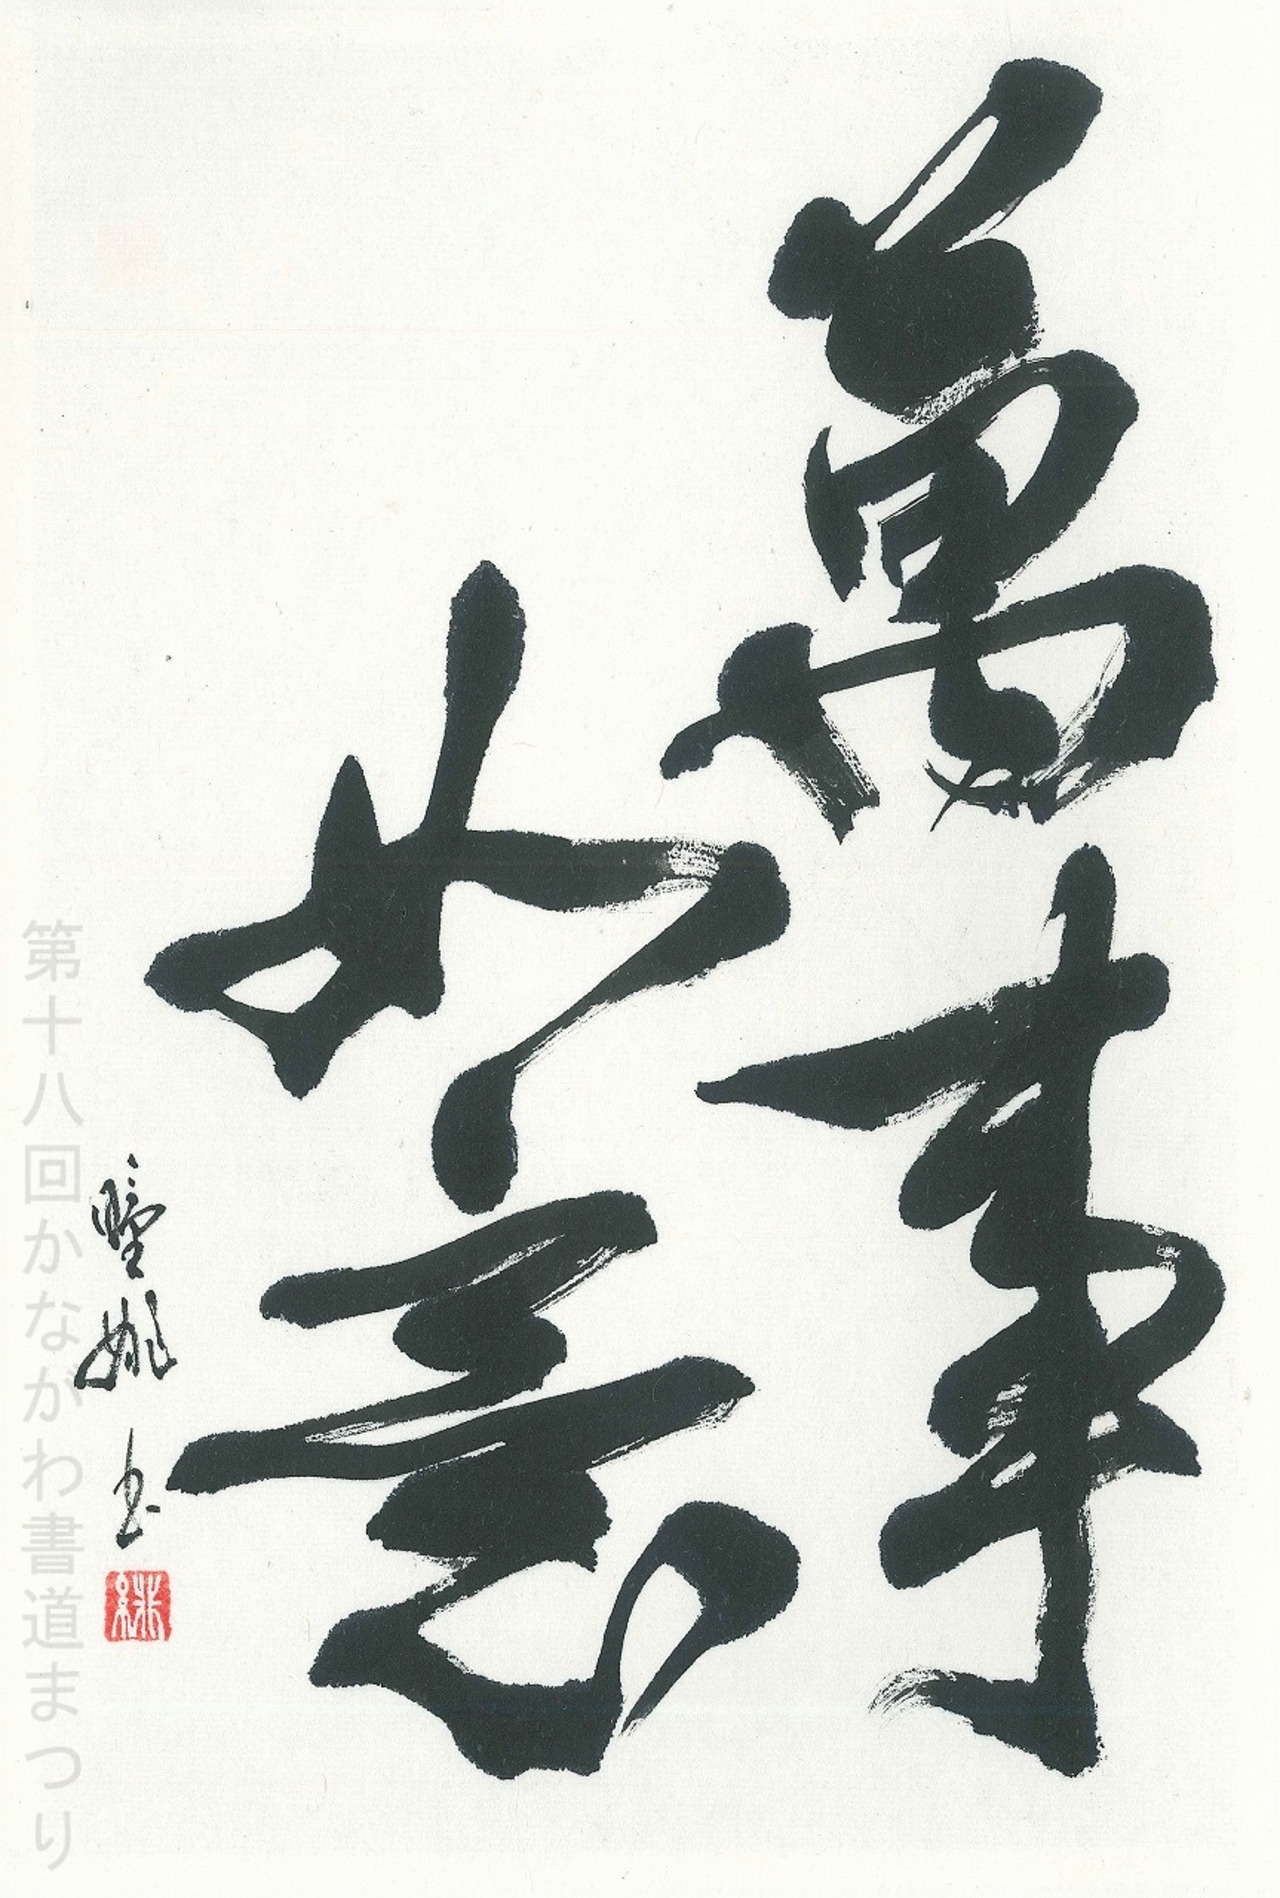 萬事
如意
第十八回かながわ書道まつり